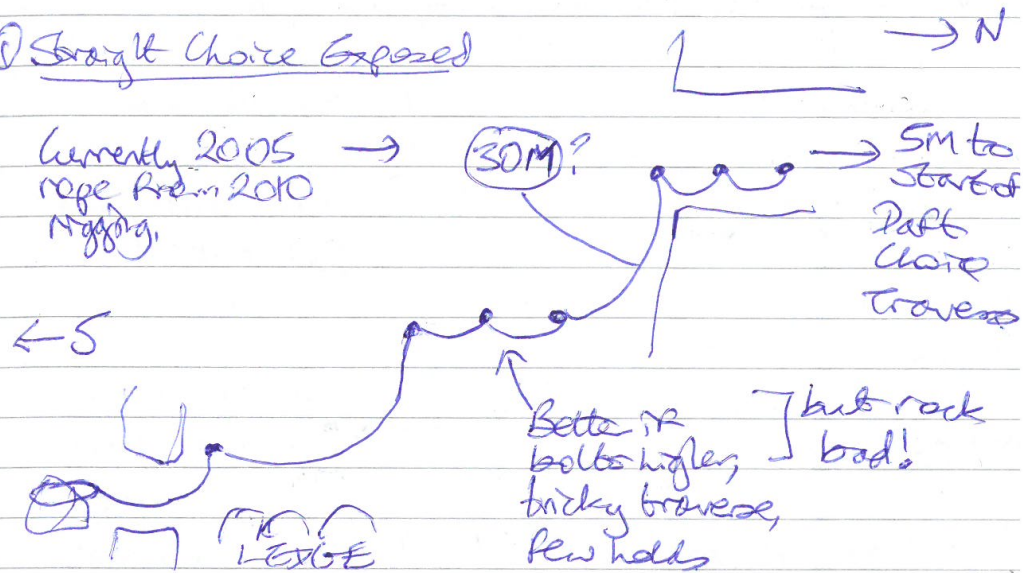 ① Straight Choice Exposed
→ N
Currently 2005
rope from 2010
rigging.
→
30M?
→ 5M to
start of
Daft
Choice
Traverse
← S
Better if
bolts higher,
tricky traverse,
few holds
but rock
bad!
LEDGE